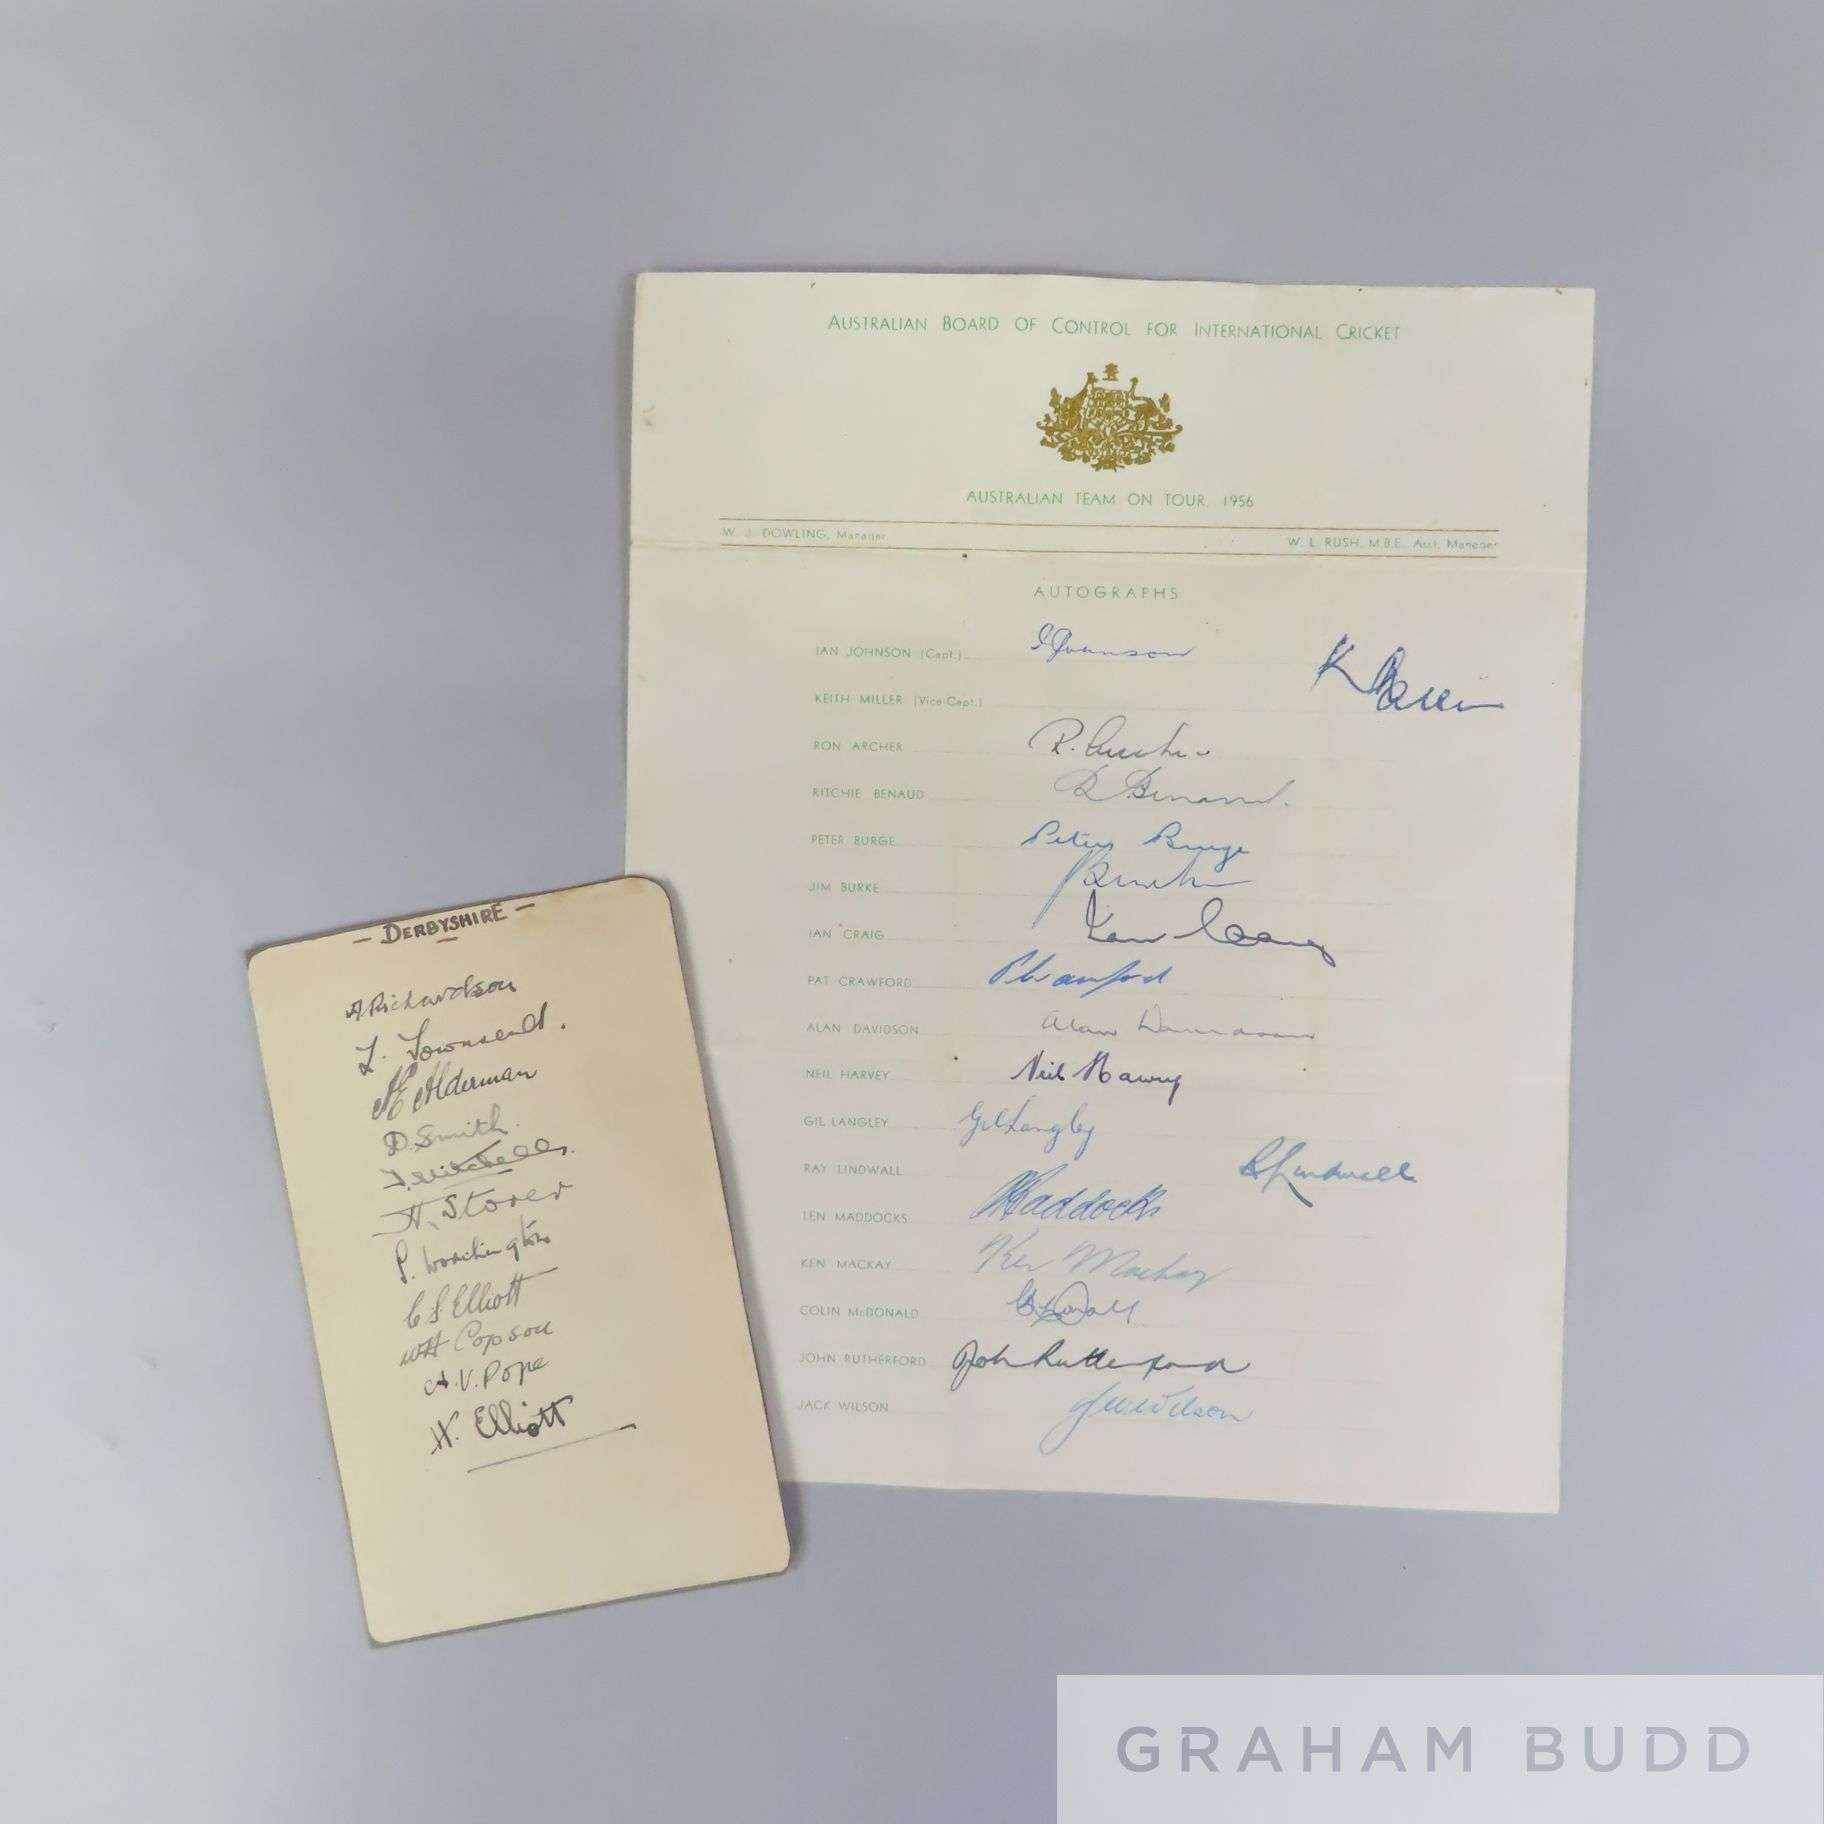 AUSTRALIAN BOARD OF CONTROL FOR INTERNATIONAL CRICKET
AUSTRALIAN TEAM ON TOUR, 1956
W. J. DOWLING, Manager W. L. RUSH, M.B.E., Asst. Manager
AUTOGRAPHS
IAN JOHNSON (Capt.) I Johnson
KEITH MILLER (Vice-Capt.) K Miller
RON ARCHER R. Archer
RITCHIE BENAUD R Benaud.
PETER BURGE Peter Burge
JIM BURKE Burke
IAN CRAIG Ian Craig
PAT CRAWFORD P Crawford
ALAN DAVIDSON Alan Davidson
NEIL HARVEY Neil Harvey
GIL LANGLEY Gil Langley
RAY LINDWALL R Lindwall
LEN MADDOCKS Maddocks
KEN MACKAY Ken Mackay
COLIN McDONALD
JOHN RUTHERFORD John Rutherford
JACK WILSON J W Wilson
- DERBYSHIRE -
A Richardson
L. Townsend.
A E Alderman
D. Smith.
T. Mitchell.
H. Storer
S. Worthington
C S Elliott
W H Copson
A. V. Pope
H. Elliott
GRAHAM BUDD